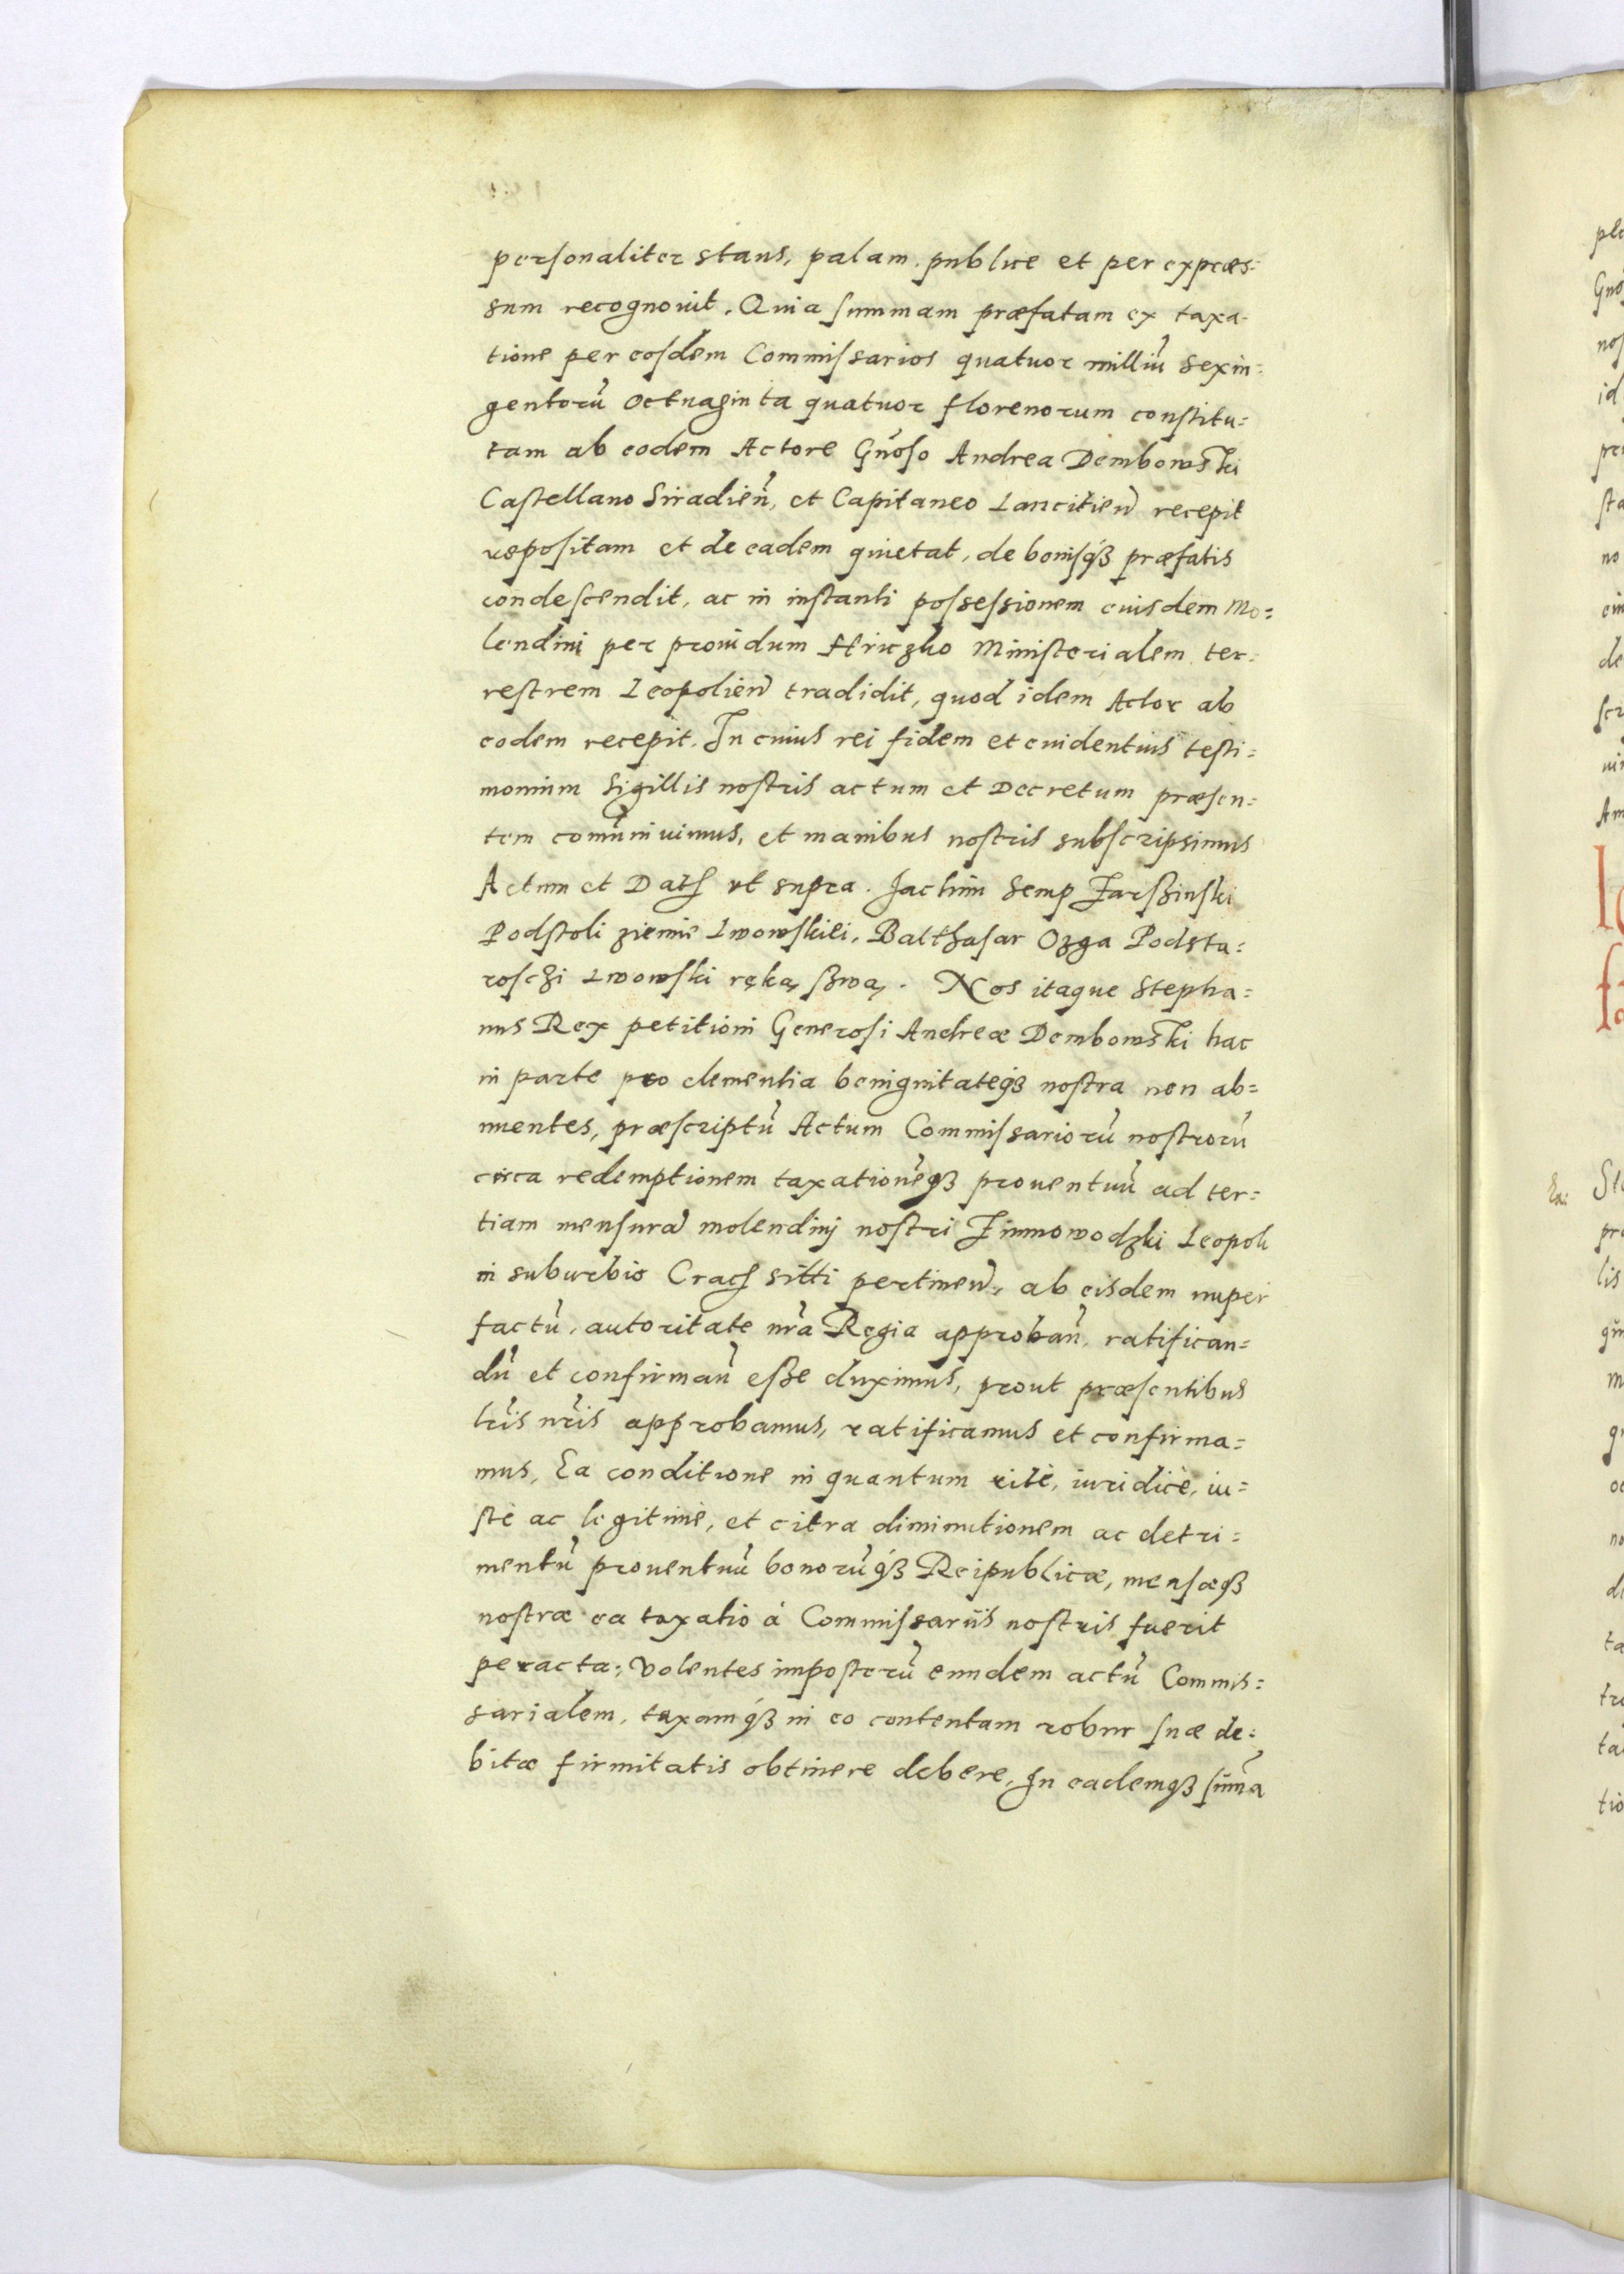 personaliter stans, palam, publice et per expræs=
sum recognouit. Quia summam præfatam ex taxa-
tione per eosdem Commissarios quatuor milliũ sexin=
gentorũ octuaginta quatuor florenorum constitu=
tam ab eodem Actore Gñoso Andrea Dembowski
Castellano Siradieñ, et Capitaneo Lancitieñ recepit
repositam et de eadem quietat, de bonisq́ꝫ præfatis
condescendit, ac in instanti possessionem euisdem Mo=
lendini per prouidum Hriczko Ministerialem ter=
restrem Leopolieñ tradidit, quod idem Actor ab
eodem recepit. In cuius rei fidem et euidentius testi=
monium Sigillis nostris actum et Decretum præsen=
tem com̃uniuimus, et manibus nostris subscripsimus
Actum et Datꝭ vt supra. Jachim Semp Jarßinski
Podstoli ziemie Lwowskiei, Balthasar Ozga Podsta=
roschi Lwowski ręką ßwą. Nos itaque Stepha=
nus Rex petitioni Generosi Andreæ Dembowski hac
in parte pro clementia benignitateqꝫ nostra non ab=
nuentes, præscriptũ Actum Commissariorũ nostrorũ
circa redemptionem taxationẽqꝫ prouentuũ ad ter=
tiam mensurã molendinj nostri Zimnowodzki Leopoli
in suburbio Cracꝭ sitti pertineñ, ab eisdem nuper
factũ, autoritate nr̃a Regia approbañ, ratifican=
dũ et confirmañ eße duximus, prout præsentibus
lr̃is nr̃is approbamus, ratificamus et confirma=
mus, Ea conditione in quantum ritè, iuridicè, iu=
stè ac legitimè, et citra diminutionem ac detri=
mentũ prouentuũ bonorũq́ꝫ Reipublicæ, mensæqꝫ
nostræ ea taxatio à Commissariis nostris fuerit
peracta; Volentes imposterũ eundem actũ Commis=
sarialem, taxamq́ꝫ in eo contentam robur suæ de=
bitæ firmitatis obtinere debere, In eademqꝫ sum̃a